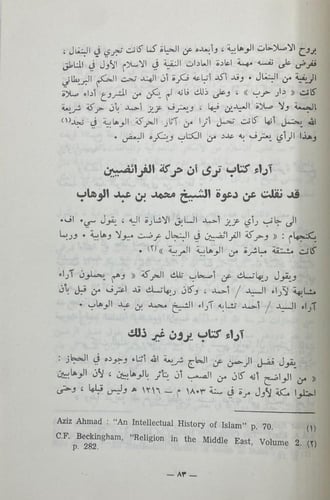 بروح الاصلاحات الوهابية ، وأبعده عن الحياة كما كانت تجري في البنغال ،
ففرض على نفسه مهمة اعادة العادات النقية في الاسلام الأول في المناطق
الريفية من البنغال . وقد أكد أتباعه فكرة أن الهند تحت الحكم البريطاني
كانت « دار حرب » ، وعلى ذلك فانه لم يكن من المشروع أداء صلاة
الجمعة ولا صلاة العيدين فيها ، ويعترف عزيز أحمد بأن حركة شريعة
الله يحتمل أنها كانت تحمل أثرا من آثار الحركة الوهابية في نجد(١)
وهذا الرأي يعترف به عدد من الكتاب وينكره البعض .
آراء كتاب ترى أن حركة الفرائضيين
قد نقلت عن دعوة الشيخ محمد بن عبد الوهاب
الى جانب رأي عزيز أحمد السابق الاشارة اليه ، يقول سي. اف.
بكنجهام : « وحركة الفرائضيين في البنجال عرضت ميولا وهابية . وربما
كانت مشتقة مباشرة من الوهابية العربية »(٢) .
ويقول ريهاتسك عن أصحاب تلك الحركة « وهم يحملون آراء
مشابهة لآراء السيد / أحمد ، وكان ريهاتسك قد اعترف من قبل بأن
آراء السيد / أحمد تشابه آراء الشيخ محمد بن عبد الوهاب .
آراء كتاب يرون غير ذلك
يقول فضل الرحمن عن الحاج شريعة الله أثناء وجوده في الحجاز :
« من الواضح أنه كان من الصعب أن يتأثر بالوهابيين ، لأن الوهابيين
احتلوا مكة لأول مرة في سنة ١٨٠٣ م — ١٢١٦ هـ وليس قبلها ، وحتى
Aziz Ahmad : "An Intellectual History of Islam" p. 70. (١)
C.F. Beckingham, "Religion in the Middle East, Volume 2. (٢)
p. 282.
— ٨٣ —